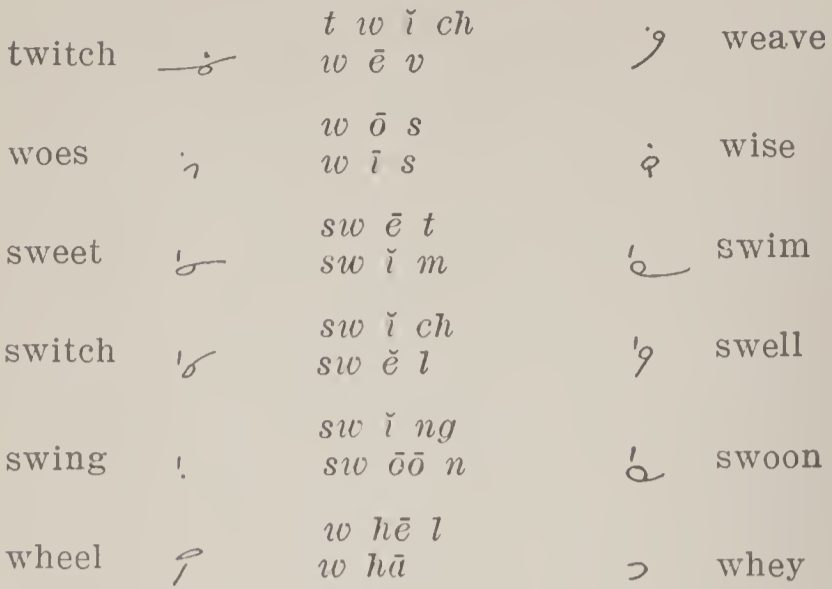 twitch t w ĭ ch
w ē v weave
woes w ō s
w ī s wise
sweet sw ē t
sw ĭ m swim
switch sw ĭ ch
sw ĕ l swell
swing sw ĭ ng
sw ōō n swoon
wheel w hē l
w hā whey